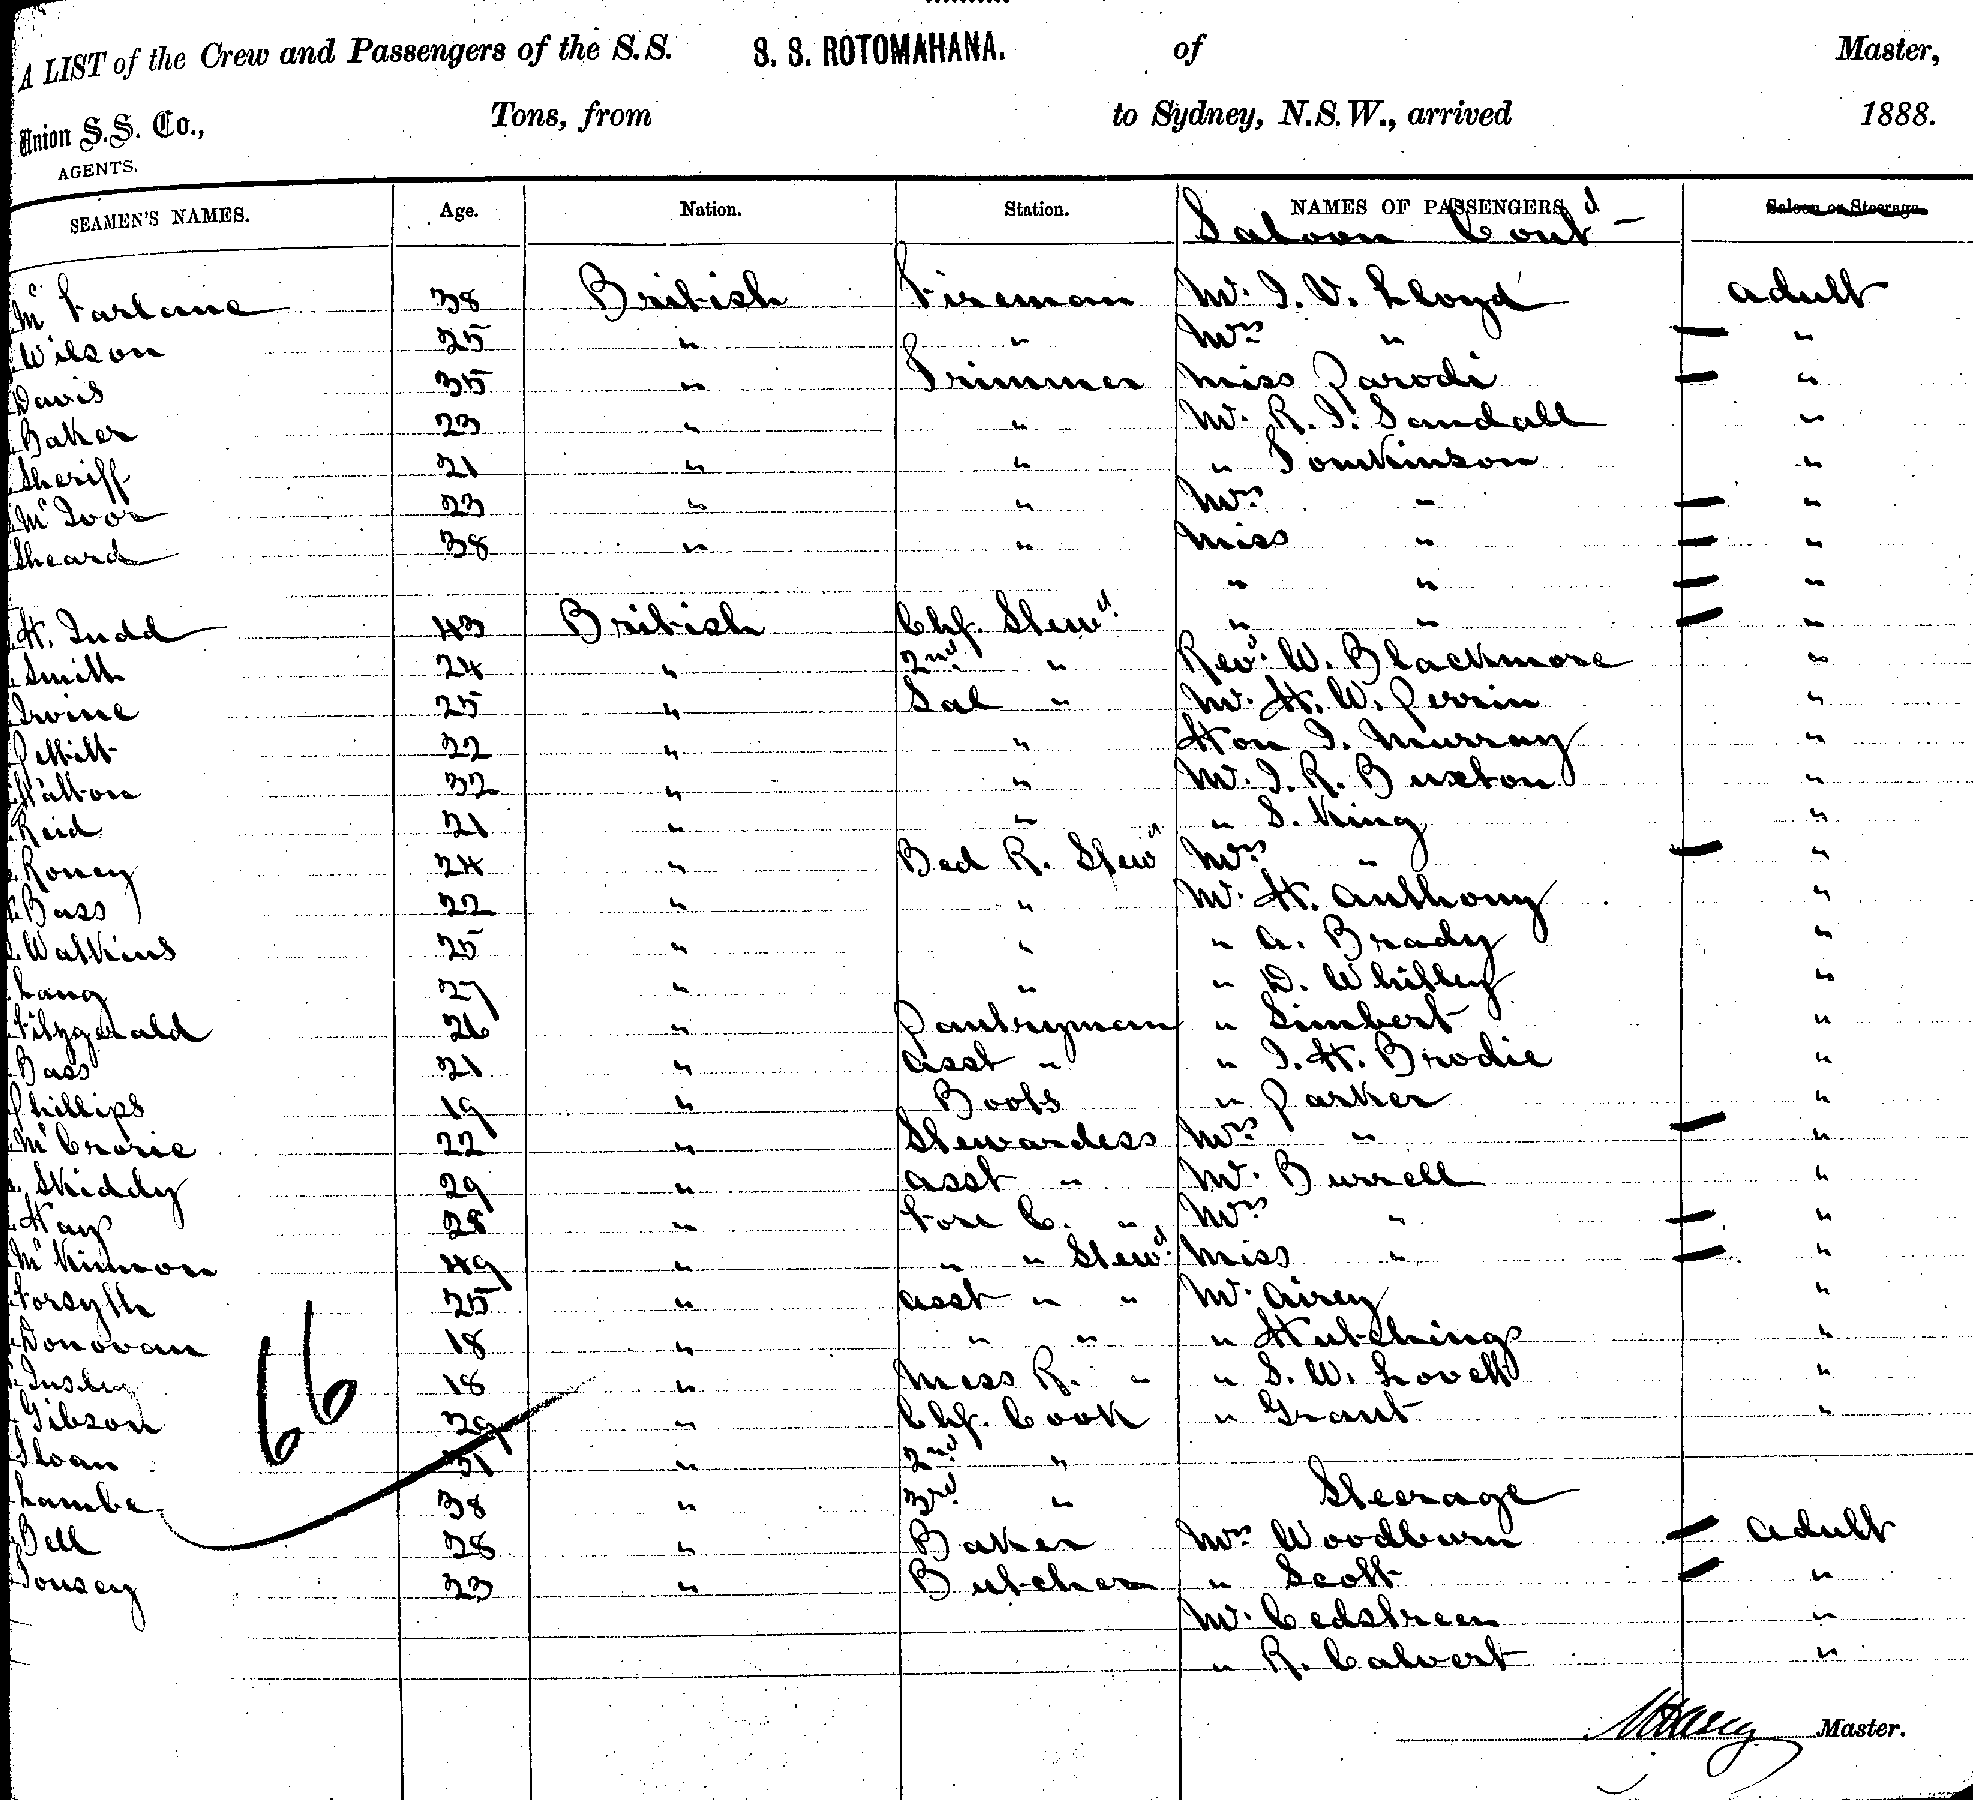 A LIST of the Crew and Passengers of the S.S. S. S. ROTOMAHANA. of Master,
Union S.S. Co., Tons, from to Sydney, N.S.W., arrived 1888.
AGENTS.
SEAMEN'S NAMES. Age. Nation. Station. NAMES OF PASSENGERS Saloon or Steerage.
Saloon Contd
McFarlane 38 British Fireman Mr. J. V. Lloyd adult
Wilson 25 " " Mrs " "
Davis 35 " Trimmer Miss Parodi "
Baker 23 " " Mr. R. J. Sandall "
Sheriff 21 " " " Tomkinson "
McIvor 23 " " Mrs " "
Sheard 38 " " Miss " "
" " "
H. Judd 43 British Chf. Stewd. " " "
Smith 24 " 2nd " Revd. W. Blackmore "
Irvine 25 " Sal " Mr. H. W. Perrin "
Pettitt 22 " " Hon J. Murray "
32 " " Mr. J. R. Buxton "
Reid 21 " " " S. King "
Roney 24 " Bed R. Stewd Mrs " "
Bass 22 " " Mr. H. Anthony "
Watkins 25 " " " A. Brady "
Lang 27 " " " D. Whitley "
Fitzgerald 26 " Pantryman " Limbert "
Bass 21 " asst " " J. H. Brodie "
Phillips 19 " Boots " Parker "
McCrorie 22 " Stewardess Mrs " "
Skiddy 29 " asst " Mr. Burrell "
Hay 28 " Fore C. " Mrs " "
McKinnon 49 " " " Stewd. Miss " "
Forsyth 25 " asst " " Mr. Airey "
Donovan 18 " " " " Hutchings "
18 " Mess R. " " S. W. Lovett "
Gibson 29 " Chf. Cook " Grant "
Sloan 31 " 2nd "
Lambe 38 " 3rd " Steerage
Bell 28 " Baker Mrs Woodburn adult
Tousey 23 " Butcher " Scott "
Mr. Cedstreen "
" R. Calvert "
66
Master.